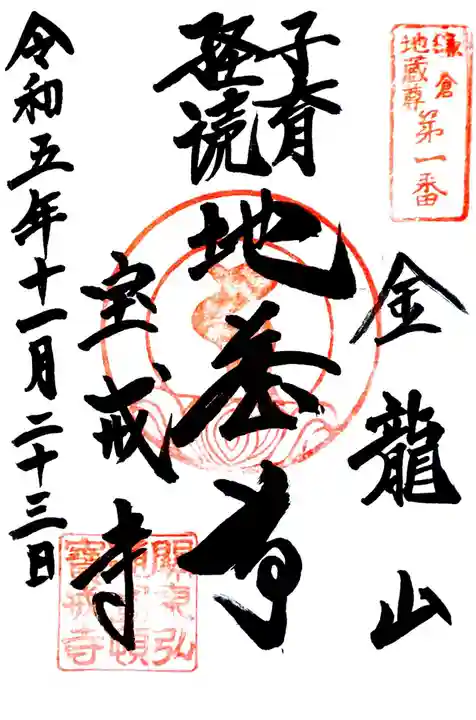 鎌倉
地蔵尊
第一番
金龍山
子育
経読
地蔵尊
宝戒寺
令和五年十一月二十三日
關東弘
圓頓
寶戒寺